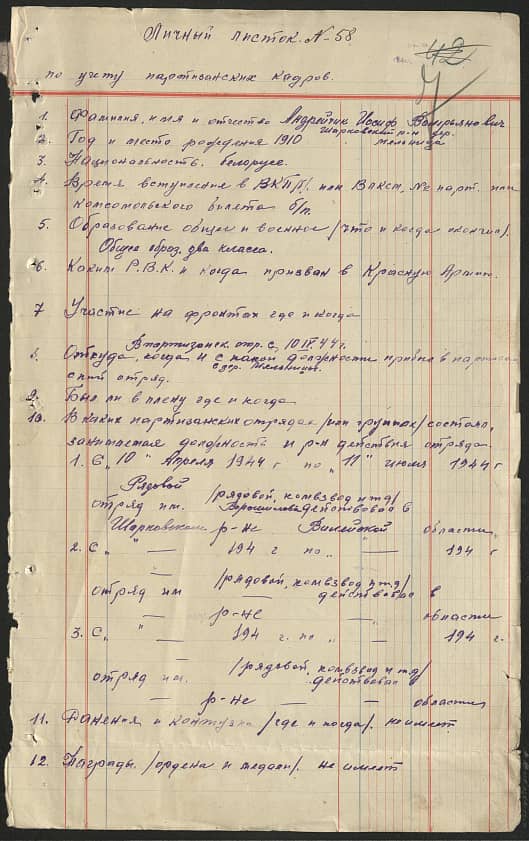 Личный листок. N-58
42
по учету партизанских кадров.
1. Фамилия, имя и отчество Андрейчик Иосиф Валерьянович
2. Год и место рождения 1910 Шарковский р-н дер. Мельница
3. Национальность. белорусс.
4. Время вступление в ВКП/б/ или ВЛКСМ, № парт. или
комсомольского билета б/п.
5. Образование общее и военное /что и когда окончил/.
Общее образ. два класса.
6. Каким Р.В.К. и когда призван в Красную Армию.
7 Участие на фронтах где и когда
В партизанск. отр. с 10 IV 44 г.
8. Откуда, когда и с какой должности прибыл в партизан
ский отряд. с дер. Мельницы.
9. Был ли в плену где и когда
10. В каких партизанских отрядах /или группах/ состоял,
занимаемая должность и р-н действия отряда.
1. С „10" Апреля 1944 г по „11" июля 1944 г
Рядовой /рядовой, комвзвод и т д/
отряд им. Ворошилова действовал в
Шарковском р-не Вилейской области.
2. С „ " — 194 г по „ " — 194 г
— /рядовой, комвзвод и т д/
отряд им — действовал в
— р-не — области
3. С „ " — 194 г. по „ " — 194 г.
— /рядовой, комвзвод и т д/
отряд им. — действовал в
— р-не — области
11. Ранения и контузии /где и когда/. не имеет
12. Награды /ордена и медали/. не имеет